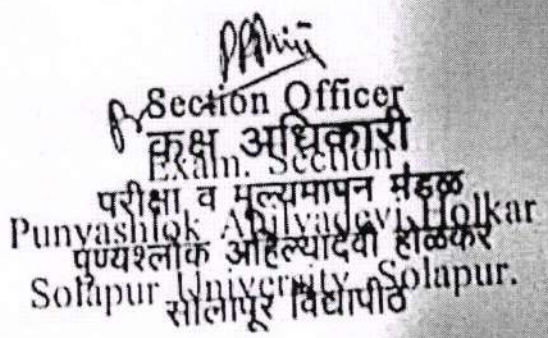 Section Officer
कक्ष अधिकारी
Exam. Section
परीक्षा व मुल्यमापन मंडळ
Punyashlok Ahilyadevi Holkar
पुण्यश्लोक अहिल्यादेवी होळकर
Solapur University, Solapur.
सोलापूर विद्यापीठ